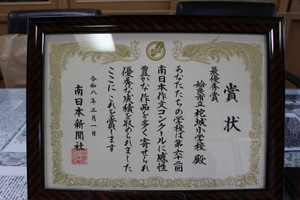 賞状
最優秀賞
姶良市立柁城小学校 殿
あなたたちの学校は第六十二回
南日本作文コンクールに感性
豊かな作品を多く寄せられ
優秀な成績を収められました
ここにこれを賞します
令和八年二月一日
南日本新聞社